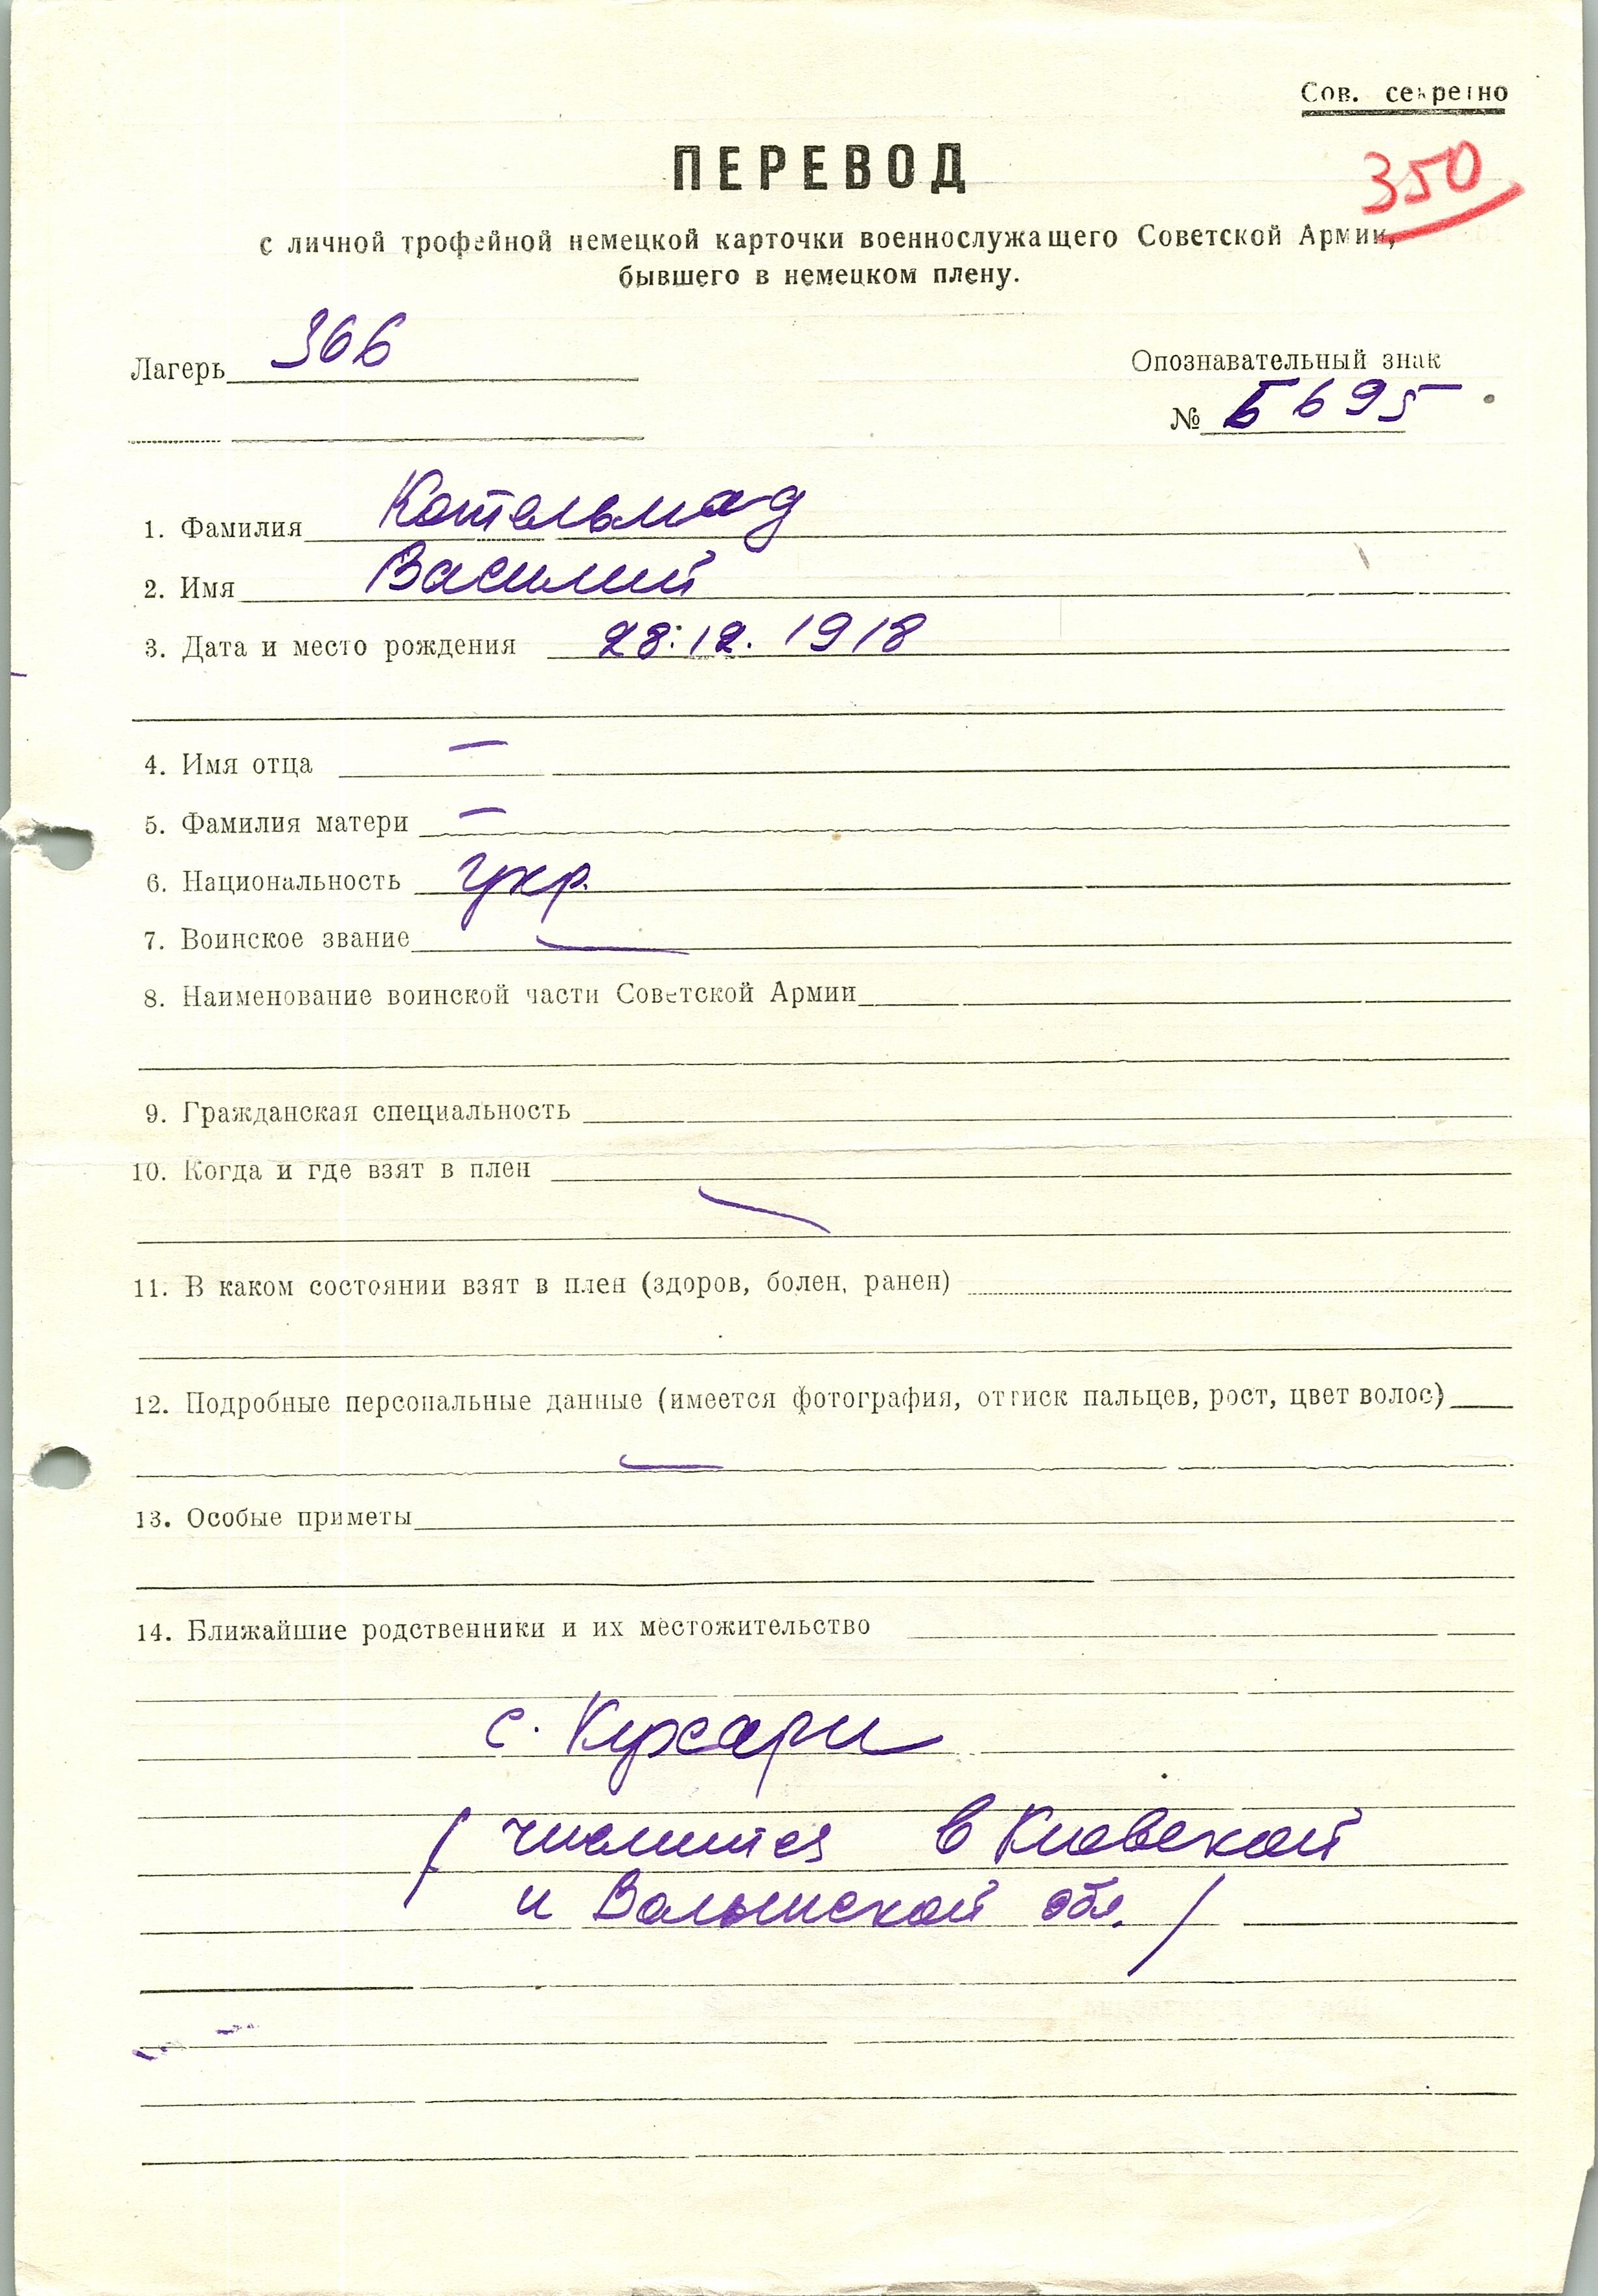 Сов. секретно
ПЕРЕВОД
350
с личной трофейной немецкой карточки военнослужащего Советской Армии,
бывшего в немецком плену.
Лагерь 366
Опознавательный знак
№ Б 695
1. Фамилия Котельмад
2. Имя Василий
3. Дата и место рождения 28.12.1918
4. Имя отца —
5. Фамилия матери —
6. Национальность укр.
7. Воинское звание —
8. Наименование воинской части Советской Армии
9. Гражданская специальность
10. Когда и где взят в плен
11. В каком состоянии взят в плен (здоров, болен, ранен)
12. Подробные персональные данные (имеется фотография, оттиск пальцев, рост, цвет волос)
—
13. Особые приметы
14. Ближайшие родственники и их местожительство
с.
( числится в Киевской
и Волынской обл. )